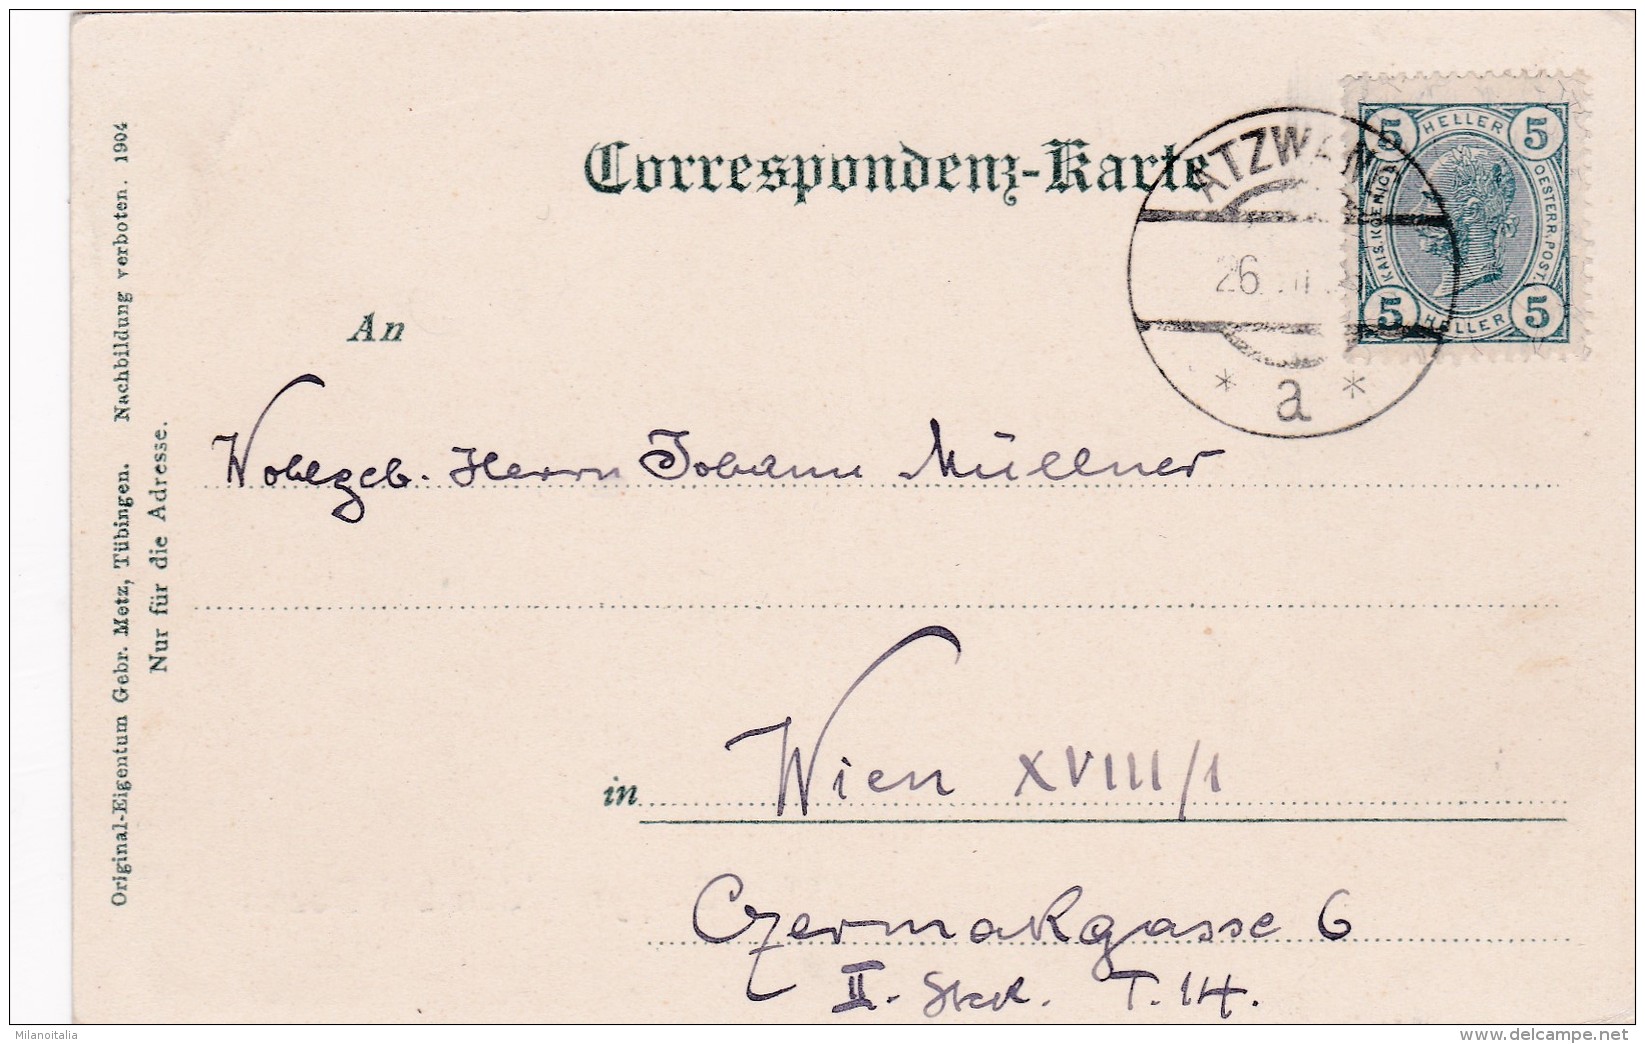 Correspondenz-Karte
ATZWANG
26
a
5 HELLER 5
KAIS. KOENIGL.
OESTERR. POST.
5 HELLER 5
An
Wohlgeb. Herrn Johann Müllner
in Wien XVIII/1
Czermakgasse 6
II. Stck. T. 14.
Original-Eigentum Gebr. Metz, Tübingen. Nachbildung verboten. 1904
Nur für die Adresse.
Milanoitalia
www.delcampe.net